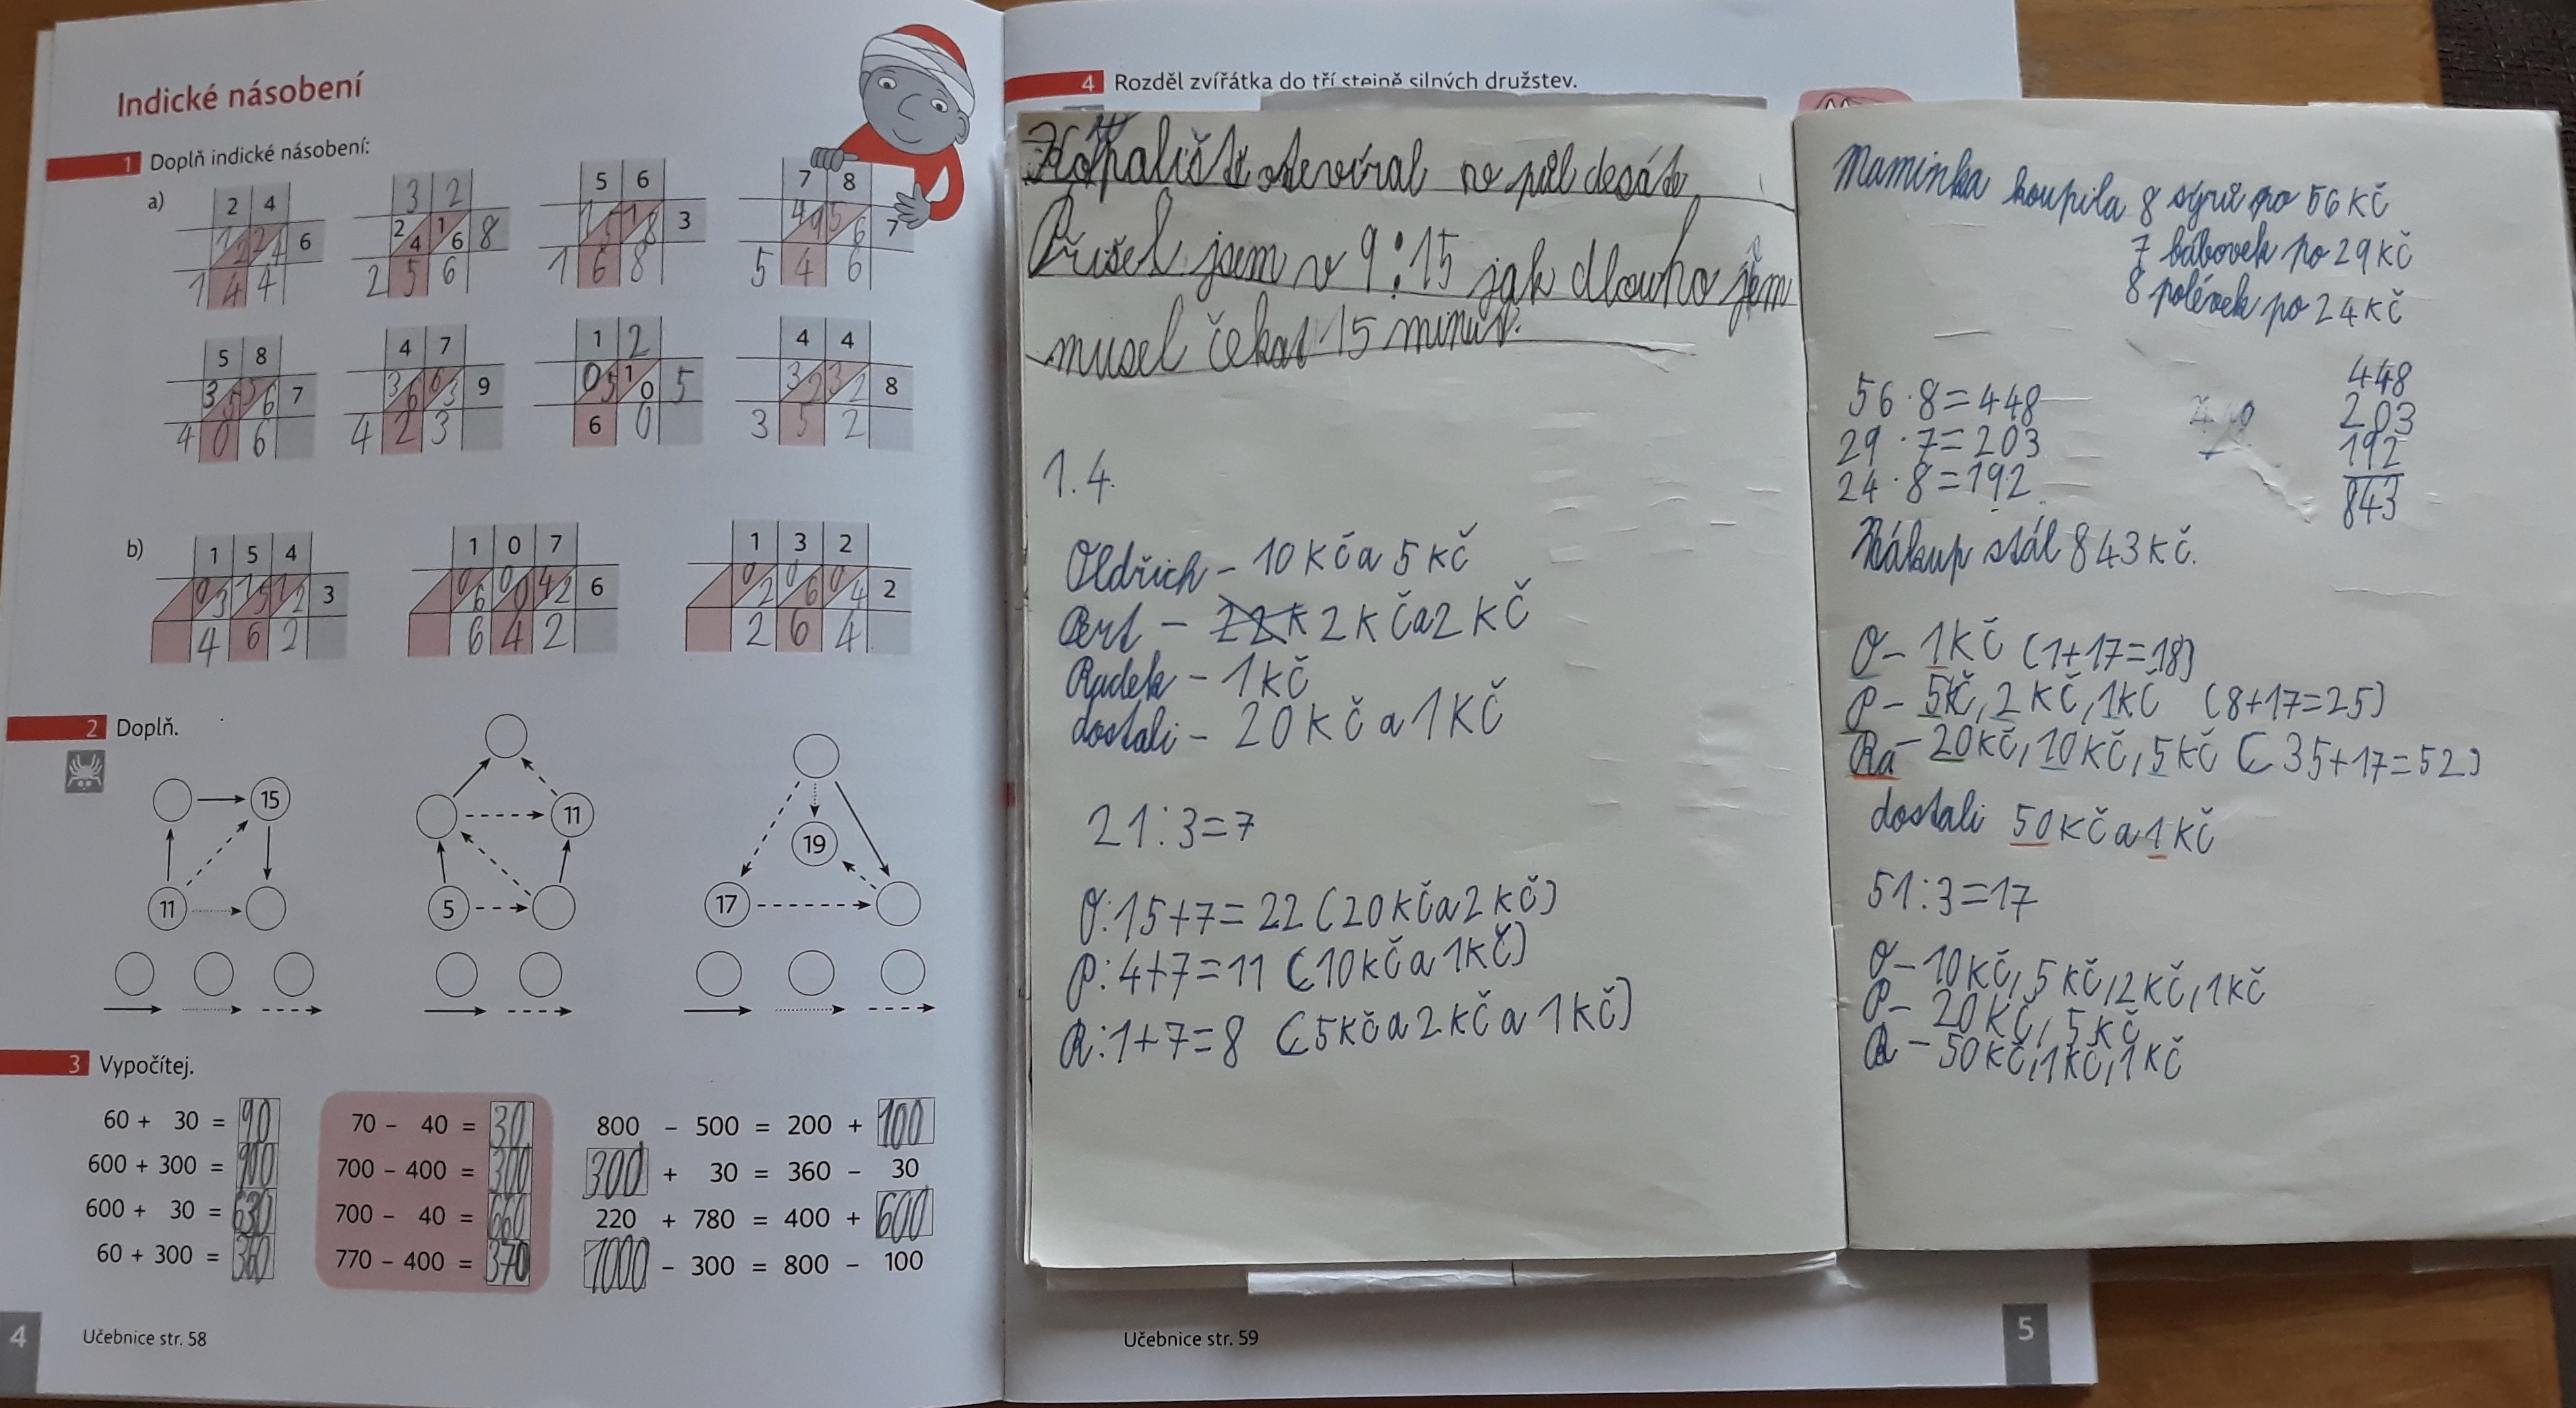 Indické násobení
1 Doplň indické násobení:
a)
2 4
1 2 2 4 6
1 4 4
3 2
2 4 1 6 8
2 5 6
5 6
1 5 1 8 3
1 6 8
7 8
4 9 5 6 7
5 4 6
5 8
3 5 5 6 7
4 0 6
4 7
3 6 6 3 9
4 2 3
1 2
0 5 1 0 5
6 0
4 4
3 2 3 2 8
3 5 2
b)
1 5 4
0 3 1 5 1 2 3
4 6 2
1 0 7
0 6 0 0 4 2 6
6 4 2
1 3 2
0 2 0 6 0 4 2
2 6 4
2 Doplň.
15
11
11
5
19
17
3 Vypočítej.
60 + 30 = 90
600 + 300 = 900
600 + 30 = 630
60 + 300 = 360
70 - 40 = 30
700 - 400 = 300
700 - 40 = 660
770 - 400 = 370
800 - 500 = 200 + 100
300 + 30 = 360 - 30
220 + 780 = 400 + 600
1000 - 300 = 800 - 100
4
Učebnice str. 58
4 Rozděl zvířátka do tří stejně silných družstev.
otevíral v půl desáte
Přišel jsem v 9:15 jak dlouho jsem
musel čekat 15 minut.
1.4.
Oldřich - 10 kč a 5 kč
- 2 kč a 2 kč
Radek - 1 kč
dostali - 20 kč a 1 kč
21:3=7
O: 15+7=22 (20 kč a 2 kč)
P: 4+7=11 (10 kč a 1 kč)
R: 1+7=8 (5 kč a 2 kč a 1 kč)
Maminka koupila 8 sýrů po 56 kč
7 bábovek po 29 kč
8 polévek po 24 kč
56·8=448
29·7=203
24·8=192
448
203
192
843
Nákup stál 843 kč.
O- 1 kč (1+17=18)
P- 5 kč, 2 kč, 1 kč (8+17=25)
Ra- 20 kč, 10 kč, 5 kč (35+17=52)
dostali 50 kč a 1 kč
51:3=17
O- 10 kč, 5 kč, 2 kč, 1 kč
P- 20 kč, 5 kč
R- 50 kč, 1 kč, 1 kč
Učebnice str. 59
5